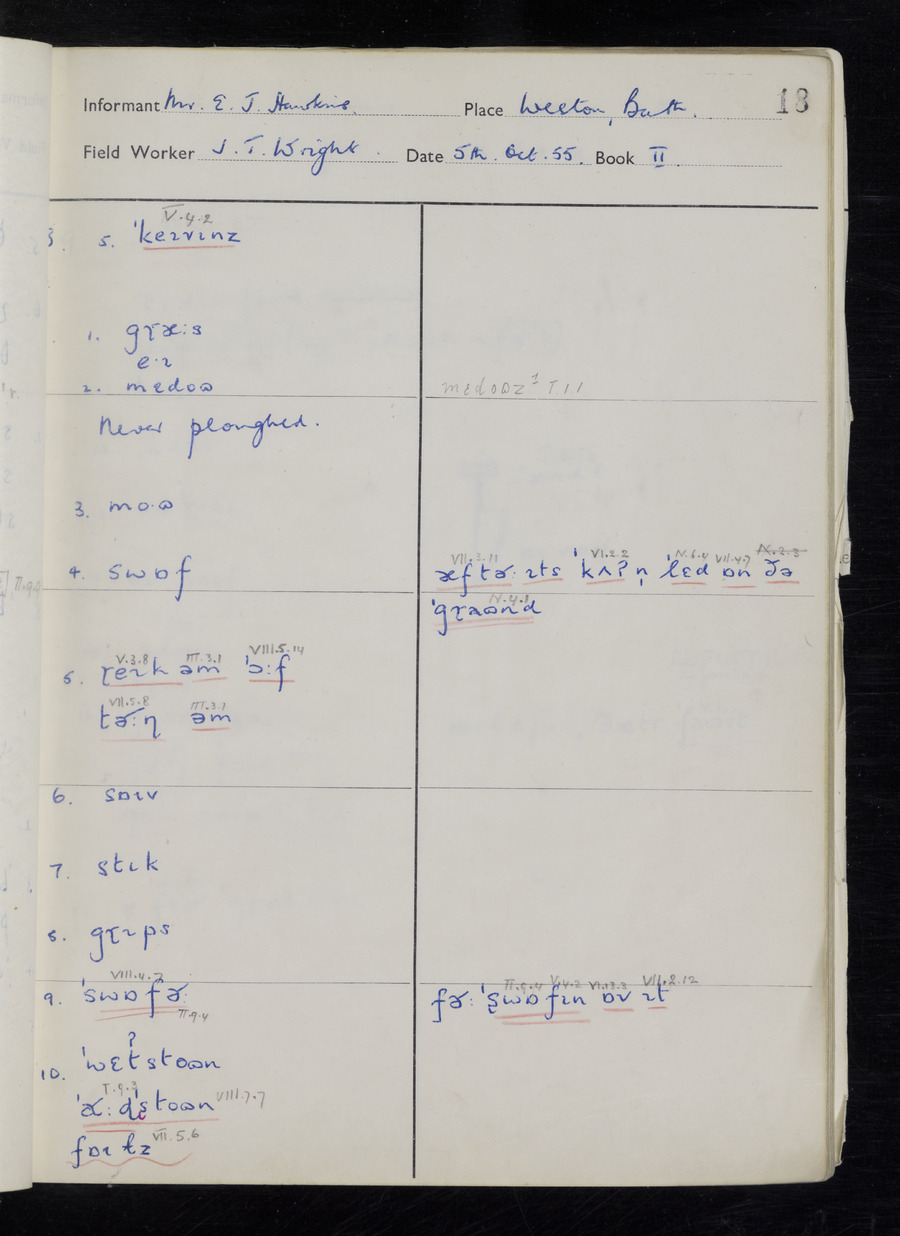 Informant Mr. E. J. Hawkins. Place Weston, Bath. 18
Field Worker J. T. Wright. Date 5th. Oct. 55. Book II.
V.4.2
3. 5. ˈkeɪvɪnz
1. gɽæ:s
e·ɪ
2. mɛdoʊ mɛdoʊz¹ T11
Never ploughed.
3. mo·ʊ
4. swɒf
VII.3.11 VI.2.2 IV.6.4 VII.4.7 IX.2.3
æftɚ: ɪts ˈkʌʔn̩ ˈlɛd ɒn ðə
IV.4.1
ˈgɽaʊnd
V.3.8 III.3.1 VIII.5.14
5. ɽeɪk əm ˈɔ:f
VII.5.8 III.3.1
tɚ:n əm
6. sɒɪv
7. stɪk
8. gɽɪps
VIII.4.7
9. ˈswɒfɚ:
II.9.4
II.9.4 V.4.2 VI.13.3 VII.2.12
fɚ: ˈswɒfɪn ɒv ɪt
ʔ
10. ˈwɛtstoʊn
I.9.3
ˈɑ˞:dˈstoʊn VIII.7.7
fɒɪlz VII.5.6